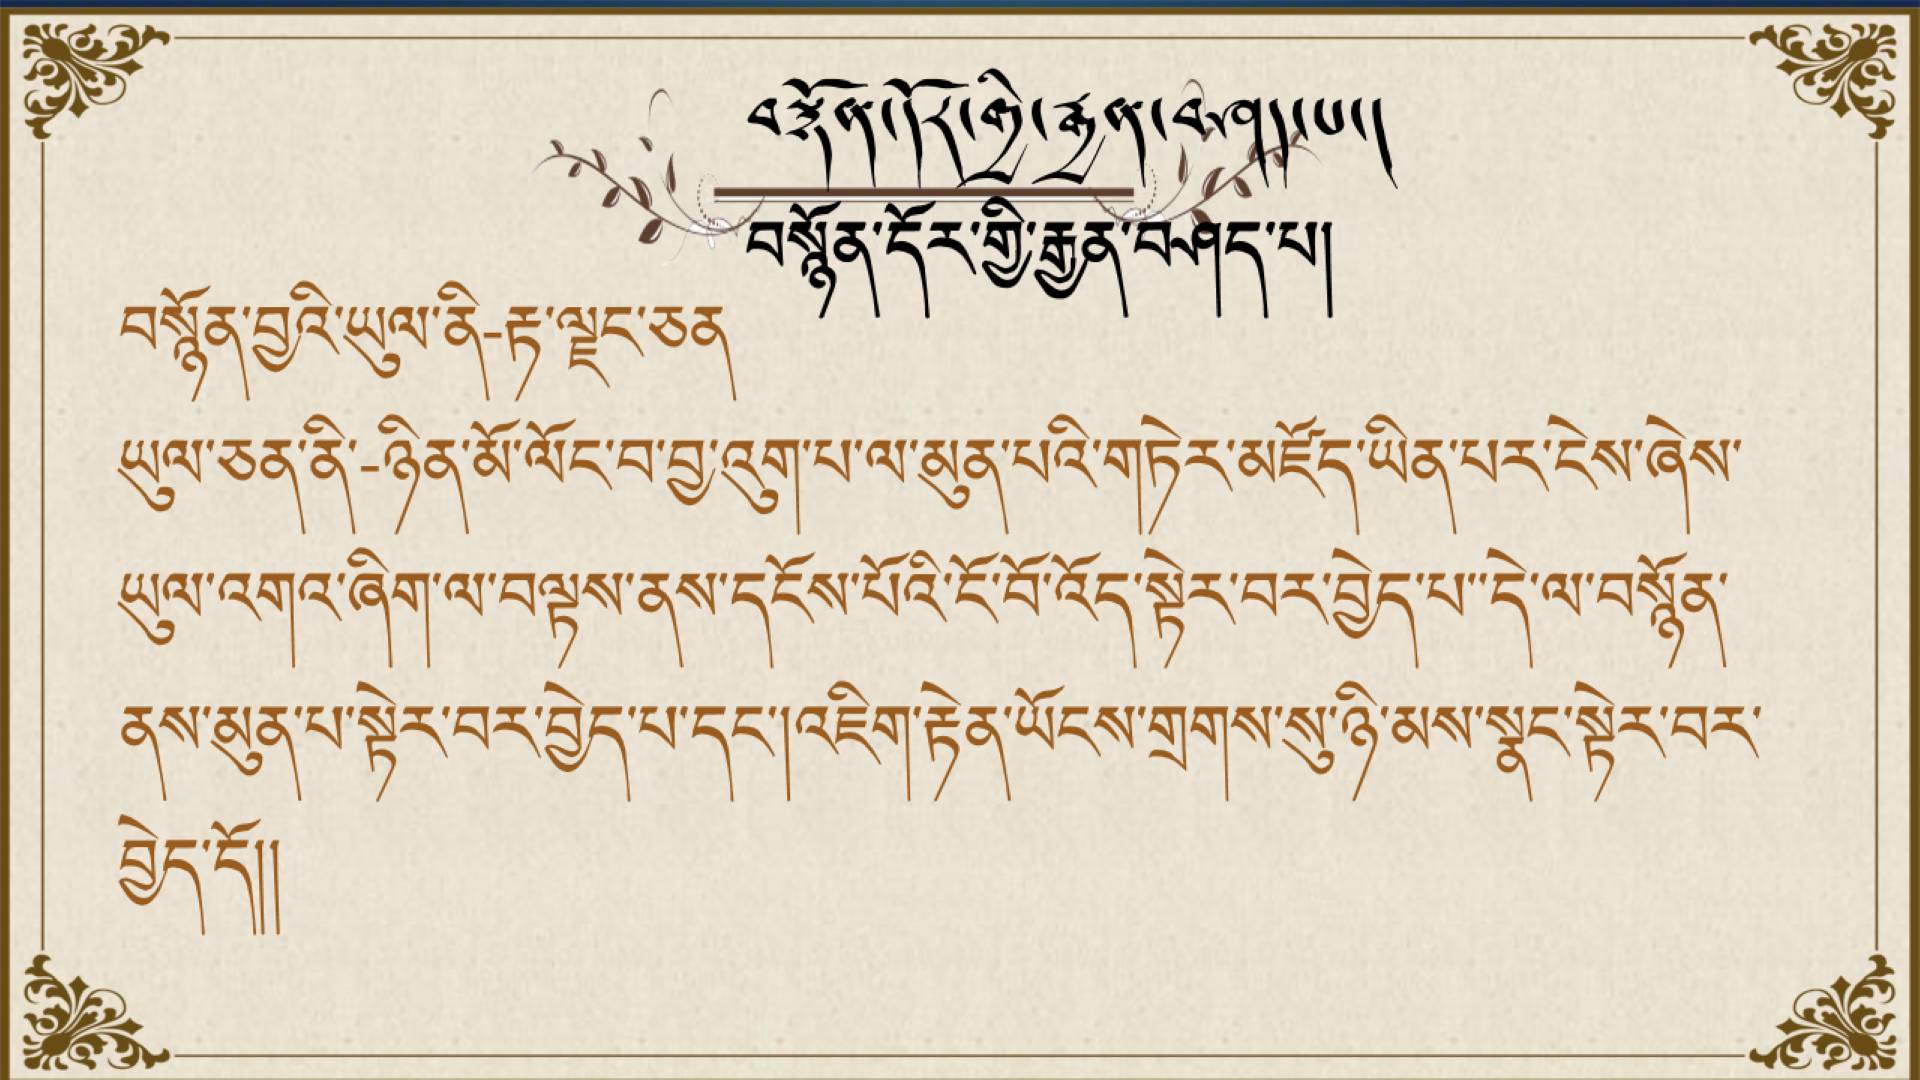 བསྙོན་དོར་གྱི་རྒྱན་བཤད་པ།
བསྙོན་དོར་གྱི་རྒྱན་བཤད་པ།
བསྙོན་བྱའི་ཡུལ་ནི-རྟ་ལྗང་ཅན
ཡུལ་ཅན་ནི་-ཉིན་མོ་ལོང་བ་བྱ་འུག་པ་ལ་མུན་པའི་གཏེར་མཛོད་ཡིན་པར་ངེས་ཞེས་
ཡུལ་འགའ་ཞིག་ལ་བལྟས་ནས་དངོས་པོའི་ངོ་བོ་འོད་སྟེར་བར་བྱེད་པ་་དེ་ལ་བསྙོན་
ནས་མུན་པ་སྟེར་བར་བྱེད་པ་དང་།འཇིག་རྟེན་ཡོངས་གྲགས་སུ་ཉི་མས་སྣང་སྟེར་བར་
བྱེད་དོ།།